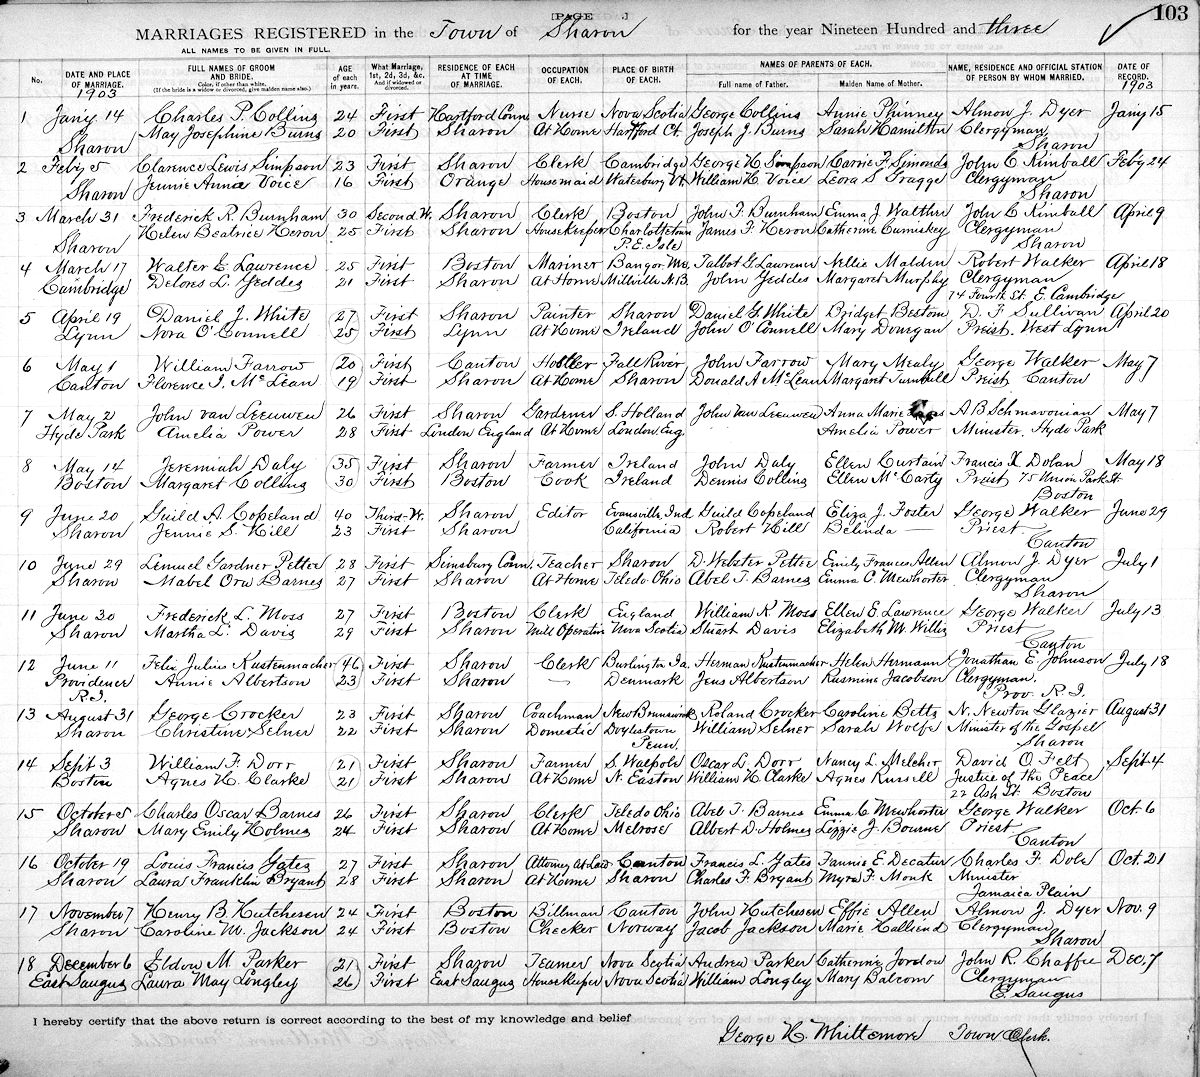 [PAGE ] 103
MARRIAGES REGISTERED in the Town of Sharon for the year Nineteen Hundred and three
ALL NAMES TO BE GIVEN IN FULL.
No. DATE AND PLACE OF MARRIAGE. FULL NAMES OF GROOM AND BRIDE. Color, if other than white. (If the bride is a widow or divorced, give maiden name also.) AGE of each in years. What Marriage, 1st, 2d, 3d, &c. And if widowed or divorced. RESIDENCE OF EACH AT TIME OF MARRIAGE. OCCUPATION OF EACH. PLACE OF BIRTH OF EACH. NAMES OF PARENTS OF EACH. Full name of Father. Maiden Name of Mother. NAME, RESIDENCE AND OFFICIAL STATION OF PERSON BY WHOM MARRIED. DATE OF RECORD.
1903 1903
1 Jany 14 Charles P. Collins 24 First Hartford Conn Nurse Nova Scotia George Collins Annie Phinney Almon J. Dyer Jany 15
Sharon May Josephine Burns 20 First Sharon At Home Hartford Ct. Joseph J. Burns Sarah Hamilton Clergyman
Sharon
2 Feby 5 Clarence Lewis Simpson 23 First Sharon Clerk Cambridge George H Simpson Carrie F. Simonds John C Kimball Feby 24
Sharon Jennie Anna Voice 16 First Orange Housemaid Waterbury Vt. William H. Voice Leora S Gragge Clergyman
Sharon
3 March 31 Frederick R. Burnham 30 Second W. Sharon Clerk Boston John F. Burnham Emma J Walther John C Kimball April 9
Sharon Helen Beatrice Heron 25 First Sharon Housekeeper Charlottetown James F. Heron Catherine Cumiskey Clergyman
P.E. Isle Sharon
4 March 17 Walter E. Lawrence 25 First Boston Mariner Bangor Me. Talbot G. Lawrence Nellie Malden Robert Walker April 18
Cambridge Delores L. Geddes 21 First Sharon At Home Millville N.B. John Geddes Margaret Murphy Clergyman
74 Fourth St. E. Cambridge
5 April 19 Daniel J. White 27 First Sharon Painter Sharon Daniel G. White Bridget Bestom D. F. Sullivan April 20
Lynn Nora O'Connell 25 First Lynn At Home Ireland John O'Connell Mary Donegan Preist. West Lynn
6 May 1 William Farrow 20 First Canton Fall River John Farrow Mary Mealy George Walker May 7
Canton Florence I. McLean 19 First Sharon At Home Sharon Donald A McLean Margaret Turnbull Preist Canton
7 May 2 John van Leeuwen 26 First Sharon Gardener S. Holland John Van Leeuwen Anna Marie A B Schmavonian May 7
Hyde Park Amelia Power 28 First London England At Home London, Eng. Amelia Power Minister. Hyde Park
8 May 14 Jeremiah Daly 35 First Sharon Farmer Ireland John Daly Ellen Curtain Francis X. Dolan May 18
Boston Margaret Collins 30 First Boston Cook Ireland Dennis Collins Ellen McCarty Preist 75 Union Park St
Boston
9 June 20 Guild A. Copeland 40 Third-W. Sharon Editor Evansville Ind Guild Copeland Eliza J. Foster George Walker June 29
Sharon Jennie S. Hill 23 First Sharon California Robert Hill Belinda — Priest
Canton
10 June 29 Lemuel Gardner Pettee 28 First Simsbury Conn. Teacher Sharon D. Webster Pettee Emily Frances Allen Almon J. Dyer July 1
Sharon Mabel Ora Barnes 27 First Sharon At Home Toledo Ohio Abel T. Barnes Emma C. Mewhorter Clergyman
Sharon
11 June 30 Frederick L. Moss 27 First Boston Clerk England William K Moss Ellen E. Lawrence George Walker July 13
Sharon Martha L. Davis 29 First Sharon Mill Operative Nova Scotia Stuart Davis Elizabeth M. Willis Priest
Canton
12 June 11 Felix Julius Kustenmacher 46 First Sharon Clerk Burlington Ia. Herman Kustenmacher Helen Hermann Jonathan E. Johnson July 18
Providence Annie Albertson 23 First Sharon — Denmark Jens Albertson Rusmine Jacobson Clergyman.
R.I. Prov. R.I.
13 August 31 George Crocker 23 First Sharon Coachman New Brunswick Roland Crocker Caroline Betts N. Newton Glazier August 31
Sharon Christine Selner 22 First Sharon Domestic Doylestown William Selner Sarah Wolfe Minister of the Gospell
Penn. Sharon
14 Sept 3 William F. Dorr 21 First Sharon Farmer S. Walpole Oscar L. Dorr Nancy L. Melcher David O. Felt Sept 4
Boston Agnes H. Clarke 21 First Sharon At Home N. Easton William H. Clarke Agnes Russell Justice of the Peace
22 Ash St. Boston
15 October 5 Charles Oscar Barnes 26 First Sharon Clerk Toledo Ohio Abel T. Barnes Emma C Mewhorter George Walker Oct. 6
Sharon Mary Emily Holmes 24 First Sharon At Home Melrose Albert D. Holmes Lizzie J. Bourne Priest
Canton
16 October 19 Louis Francis Yates 27 First Sharon Attorney at Law Canton Francis L. Yates Fannie E. Decatur Charles F. Dole Oct. 21
Sharon Laura Franklin Bryant 28 First Sharon At Home Sharon Charles F. Bryant Myra F. Monk Minister
Jamaica Plain
17 November 7 Henry B. Hutchesen 24 First Boston Billman Canton John Hutchesen Effie Allen Almon J. Dyer Nov. 9
Sharon Caroline M. Jackson 24 First Boston Checker Norway Jacob Jackson Marie Clergyman
Sharon
18 December 6 Eldon M Parker 21 First Sharon Teamer Nova Scotia Andrew Parker Catherine Jordow John R. Chaffee Dec. 7
East Saugus Laura May Longley 26 First East Saugus Housekeeper Nova Scotia William Longley Mary Balcom Clergyman
E. Saugus
I hereby certify that the above return is correct according to the best of my knowledge and belief
George H. Whittemore Town Clerk.